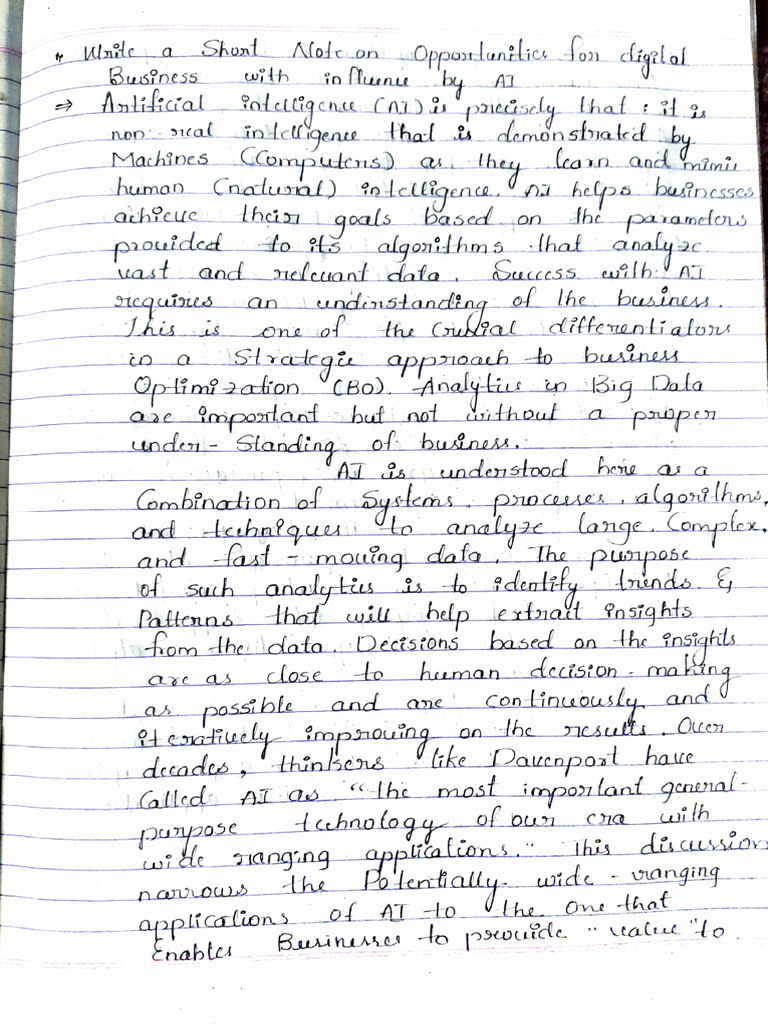 * Write a Short Note on Opportunities for digital
Business with influence by AI
⇒ Artificial intelligence (AI) is precisely that : it is
non real intelligence that is demonstrated by
Machines (Computers) as they learn and mimic
human (natural) intelligence. AI helps businesses
achieve their goals based on the parameters
provided to its algorithms that analyze
vast and relevant data. Success with AI
requires an understanding of the business.
This is one of the crucial differentiators
in a Strategic approach to business
Optimization (BO). Analytics in Big Data
are important but not without a proper
under-Standing of business.
AI is understood here as a
Combination of Systems, processes, algorithms,
and techniques to analyze large, Complex,
and fast-moving data. The purpose
of such analytics is to identify trends &
Patterns that will help extract insights
from the data. Decisions based on the insights
are as close to human decision-making
as possible and are continuously and
iteratively improving on the results. Over
decades, thinkers like Davenport have
Called AI as "the most important general-
purpose technology of our era with
wide ranging applications." This discussion
narrows the Potentially wide-ranging
applications of AI to the one that
Enables Businesses to provide "value" to